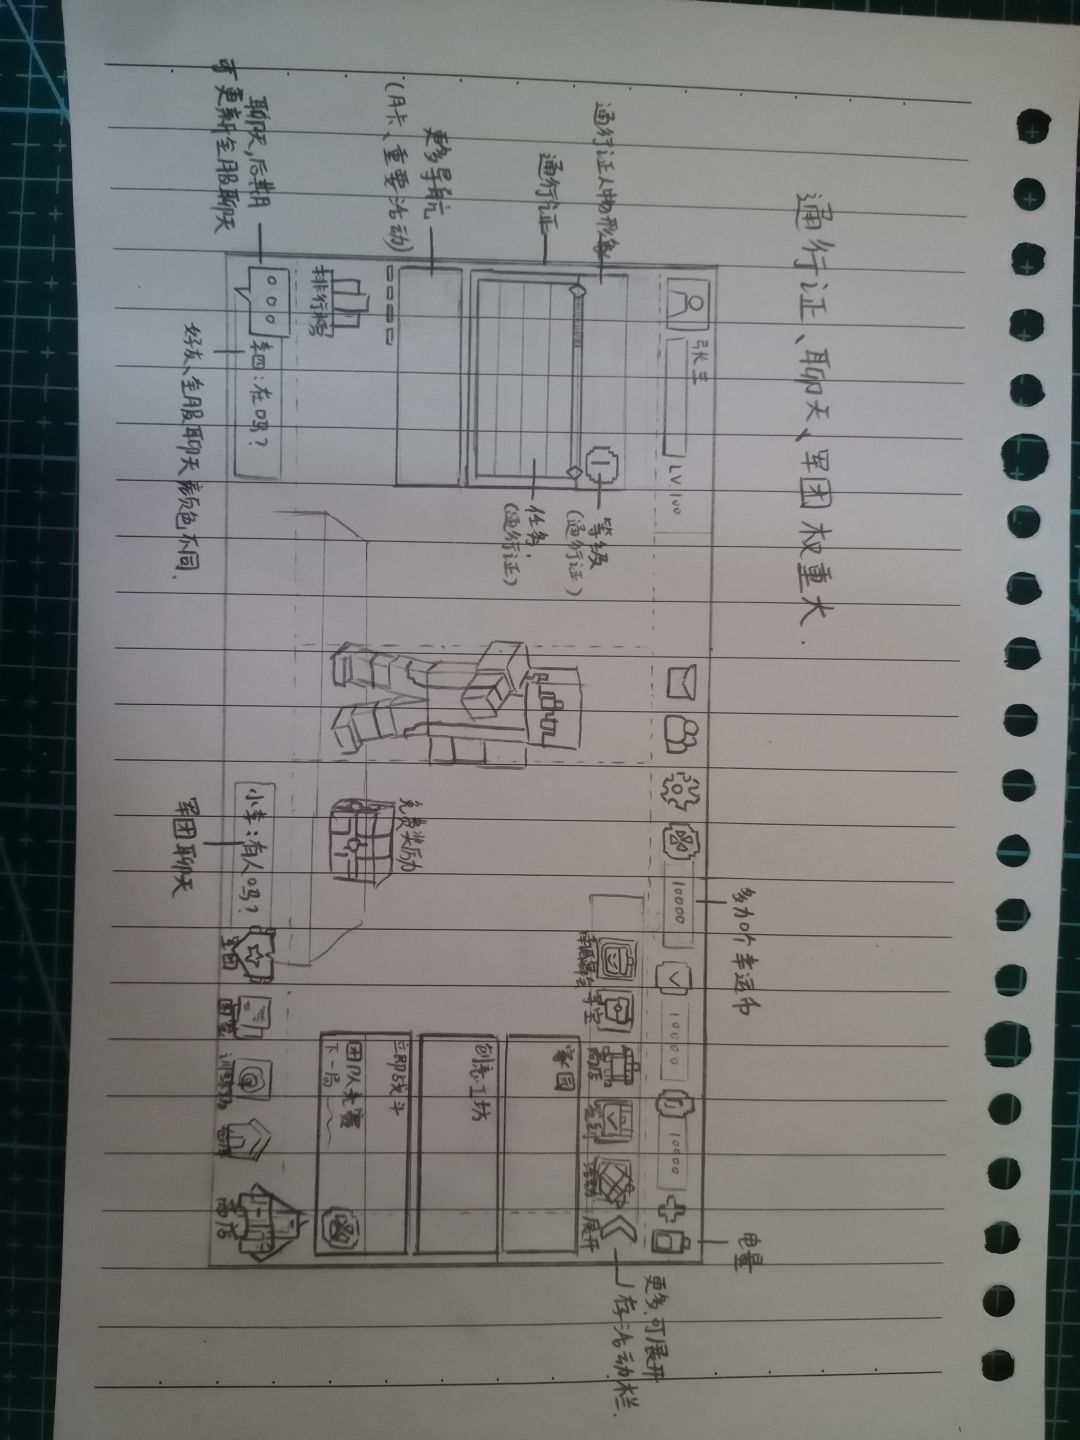 通行证、聊天、军团权重大.
多加个幸运币
电量
张三
LV100
10000
10000
10000
通行证人物形象
通行证
等级
(通行证)
任务.
(通行证)
更多导航
(月卡、重要活动)
寻宝
商店
签到
活动
展开
更多,可展开
存活动栏.
家园
创意工坊
立即战斗
团队竞赛
下一局
免费奖励
排行榜
聊天,后期
可更新全服聊天
李四:在吗?
好友、全服聊天颜色不同.
小李:有人吗?
军团聊天
军团
图鉴
训练场
仓库
商店